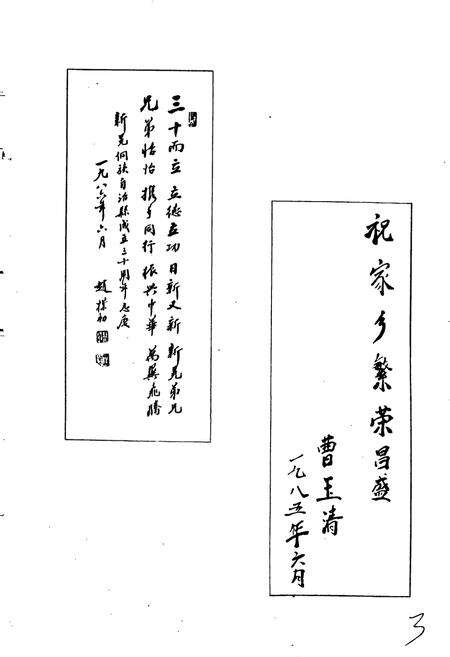 三十而立 立德立功 日新又新 新晃弟兄
兄弟怡怡 携手同行 振兴中華 萬翼飛騰
新晃侗族自治縣成立三十周年志慶
一九八六年六月 趙樸初
祝家乡繁荣昌盛
曹玉清
一九八五年六月
3